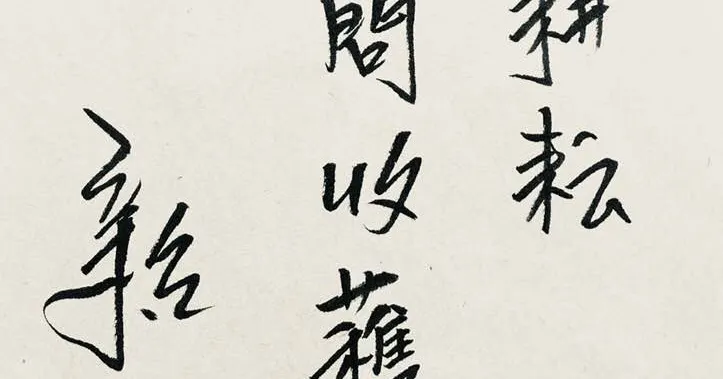 耕耘
問收穫